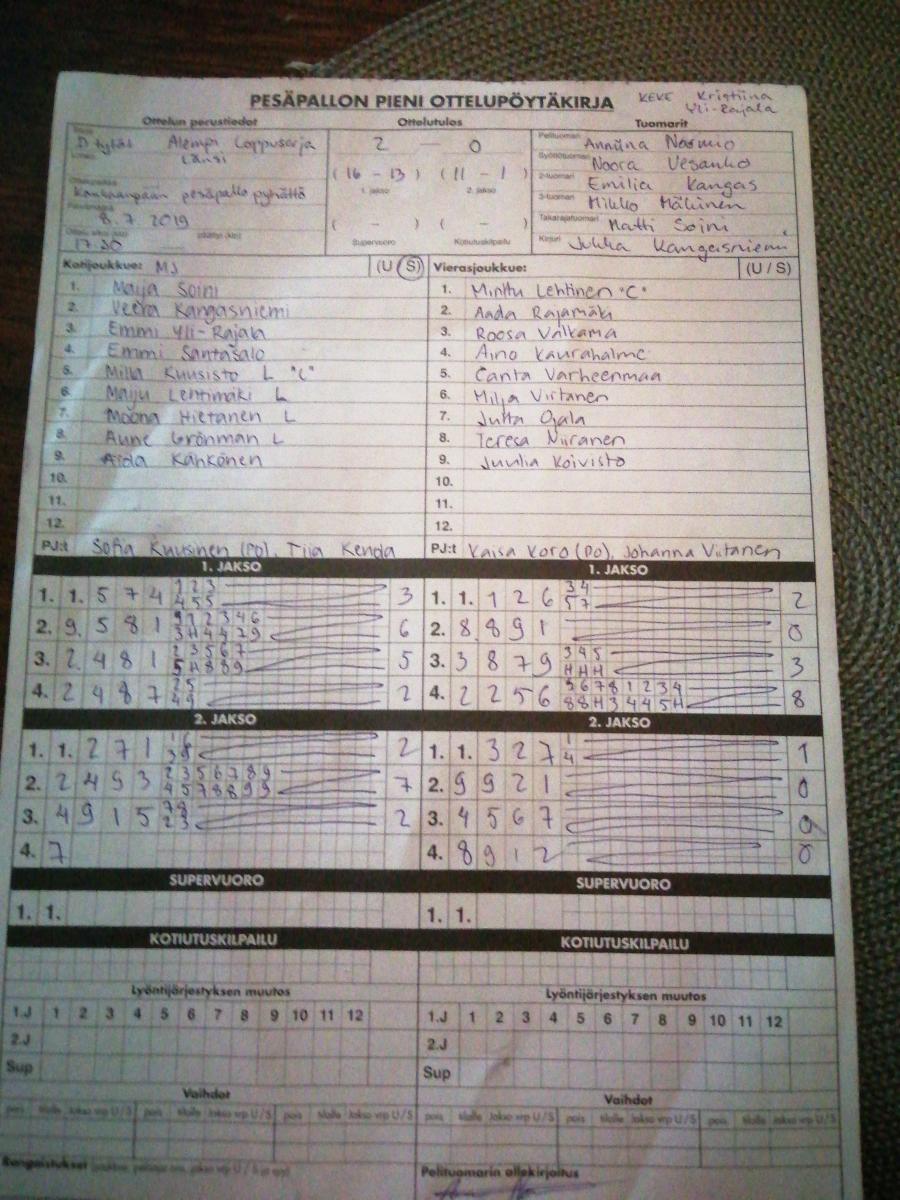 PESÄPALLON PIENI OTTELUPÖYTÄKIRJA
KEKE Kristiina
Yli-Rajala
Ottelun perustiedot
Ottelutulos
Tuomarit
D tytöt Alempi Loppusarja
Länsi
Kankaanpään pesäpallo pyhättö
8.7.2019
17.30
2 — 0
(16 - 13) (11 - 1)
1. jakso 2. jakso
( - ) ( - )
Supervuoro Kotiutuskilpailu
Pelituomari Anniina Nosmio
Syöttötuomari Noora Vesanko
2-tuomari Emilia Kangas
3-tuomari Mikko Mäkinen
Takarajatuomari Matti Soini
Kirjuri Jukka Kangasniemi
Kotijoukkue: MJ (U / S)
1. Maija Soini
2. Veera Kangasniemi
3. Emmi Yli-Rajala
4. Emmi Santasalo
5. Milla Kuusisto L "C"
6. Maiju Lehtimäki L
7. Moona Hietanen L
8. Aune Grönman L
9. Aida Kähkönen
10.
11.
12.
PJ:t Sofia Kuusinen (PO), Tiia Kenda
Vierasjoukkue: (U / S)
1. Minttu Lehtinen "C"
2. Aada Rajamäki
3. Roosa Valkama
4. Aino Kaurahalme
5. Canta Varheenmaa
6. Milja Virtanen
7. Jutta Ojala
8. Teresa Niiranen
9. Juulia Koivisto
10.
11.
12.
PJ:t Kaisa Koro (PO), Johanna Viitanen
1. JAKSO
1. 1. 5 7 4 1 2 3
4 5 5 3
2. 9. 5 8 1 9 1 2 3 4 6
3 H 4 4 7 9 6
3. 2. 4 8 1 2 3 5 6 7
5 H 8 8 9 5
4. 2 4 8 7 2 5
4 9 2
1. JAKSO
1. 1. 1 2 6 3 4
5 7 2
2. 8. 8 9 1 0
3. 3 8 7 9 3 4 5
H H H 3
4. 2 2 5 6 5 6 7 8 1 2 3 4
8 8 H 3 4 4 5 H 8
2. JAKSO
1. 1. 2 7 1 1 6
3 8 2
2. 2 4 9 3 2 3 5 6 7 8 9
4 5 7 8 8 9 9 7
3. 4 9 1 5 7 8
2 3 2
4. 7
2. JAKSO
1. 1. 3 2 7 1
4 1
2. 9 9 2 1 0
3. 4 5 6 7 0
4. 8 9 1 2 0
SUPERVUORO
1. 1.
SUPERVUORO
1. 1.
KOTIUTUSKILPAILU
KOTIUTUSKILPAILU
Lyöntijärjestyksen muutos
1.J 1 2 3 4 5 6 7 8 9 10 11 12
2.J
Sup
Lyöntijärjestyksen muutos
1.J 1 2 3 4 5 6 7 8 9 10 11 12
2.J
Sup
Vaihdot
pois tilalle Jakso vrp U / S pois tilalle Jakso vrp U / S pois tilalle Jakso vrp U / S
Vaihdot
pois tilalle Jakso vrp U / S pois tilalle Jakso vrp U / S pois tilalle Jakso vrp U / S
Rangaistukset
Pelituomarin allekirjoitus